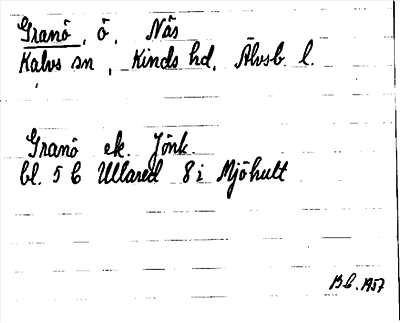 Granö, ö, Näs
Kalvs sn, Kinds hd, Älvsb. l.
Granö ek. Jönk.
bl. 5 C Ullared 8 i Mjöhult
1957